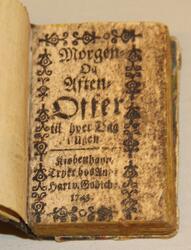 Morgen-
Og
Aften-
Offer
til hver Dag
i Ugen
Kiøbenhavn,
Trykt hos An-
Hartv. Godich
1743.